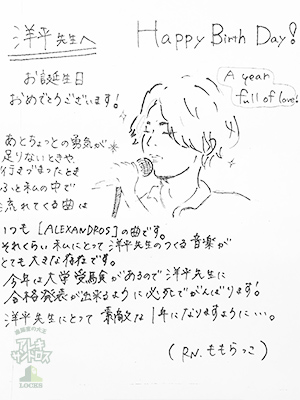 洋平先生へ
Happy Birth Day!
お誕生日
おめでとうございます!
A year
full of love!
あとちょっとの勇気が
足りないときや
行きづまったとき
ふと私の中で
流れてくる曲は
いつも[ALEXANDROS]の曲です。
それくらい私にとって洋平先生のつくる音楽が
とても大きな存在です。
今年は大学受験があるので洋平先生に
合格発表が出来るように必死でがんばります!
洋平先生にとって素敵な1年になりますように…。
(RN.ももらっこ)
LOCKS